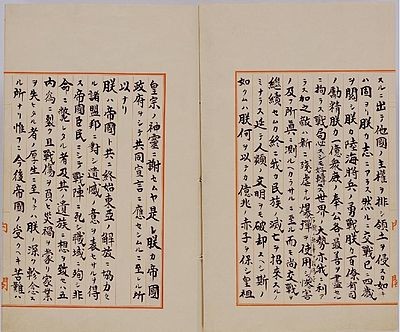 スルニ出テ他國ノ主權ヲ排シ領土ヲ侵スカ如キ
ハ固ヨリ朕カ志ニアラス然ルニ交戰已ニ四歳
ヲ閲シ朕カ陸海將兵ノ勇戰朕カ百僚有司
ノ勵精朕カ一億衆庶ノ奉公各〻最善ヲ盡セル
ニ拘ラス戰局必スシモ好轉セス世界ノ大勢亦我ニ利ア
ラス加之敵ハ新ニ殘虐ナル爆彈ヲ使用シテ頻ニ無辜ヲ殺傷シ惨害
ノ及フ所眞ニ測ルヘカラサルニ至ル而モ尚交戰ヲ
繼續セムカ終ニ我カ民族ノ滅亡ヲ招來スルノ
ミナラス延テ人類ノ文明ヲモ破却スヘシ斯ノ
如クムハ朕何ヲ以テカ億兆ノ赤子ヲ保シ皇祖
皇宗ノ神靈ニ謝セムヤ是レ朕カ帝國
政府ヲシテ共同宣言ニ應セシムルニ至レル所
以ナリ
朕ハ帝國ト共ニ終始東亞ノ解放ニ協力セ
ル諸盟邦ニ對シ遺憾ノ意ヲ表セサルヲ得
ス帝國臣民ニシテ戰陣ニ死シ職域ニ殉シ非
命ニ斃レタル者及其ノ遺族ニ想ヲ致セハ五
内爲ニ裂ク且戰傷ヲ負ヒ災禍ヲ蒙リ家業
ヲ失ヒタル者ノ厚生ニ至リテハ朕ノ深ク軫念ス
ル所ナリ惟フニ今後帝國ノ受クヘキ苦難ハ